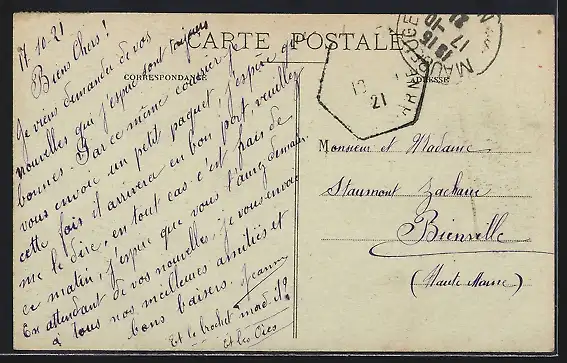 CARTE POSTALE
CORRESPONDANCE
ADRESSE
17-10-21
Biens Chers!
Je viens demander de vos
nouvelles qui j'espère sont toujours
bonnes. Par ce même courrier je
vous envoie un petit paquet j'espère que
cette fois il arrivera en bon port, veuillez
me le dire, en tout cas c'est frais de
ce matin, j'espère que vous l'aurez demain.
En attendant de vos nouvelles, je vous envoie
à tous nos meilleures amitiés et
bons baisers. Jeanne
Et le crochet
Et les
18 15
17 -10
21
21
Monsieur et Madame
Staumont Zacharie
Bienville
(Haute Marne)